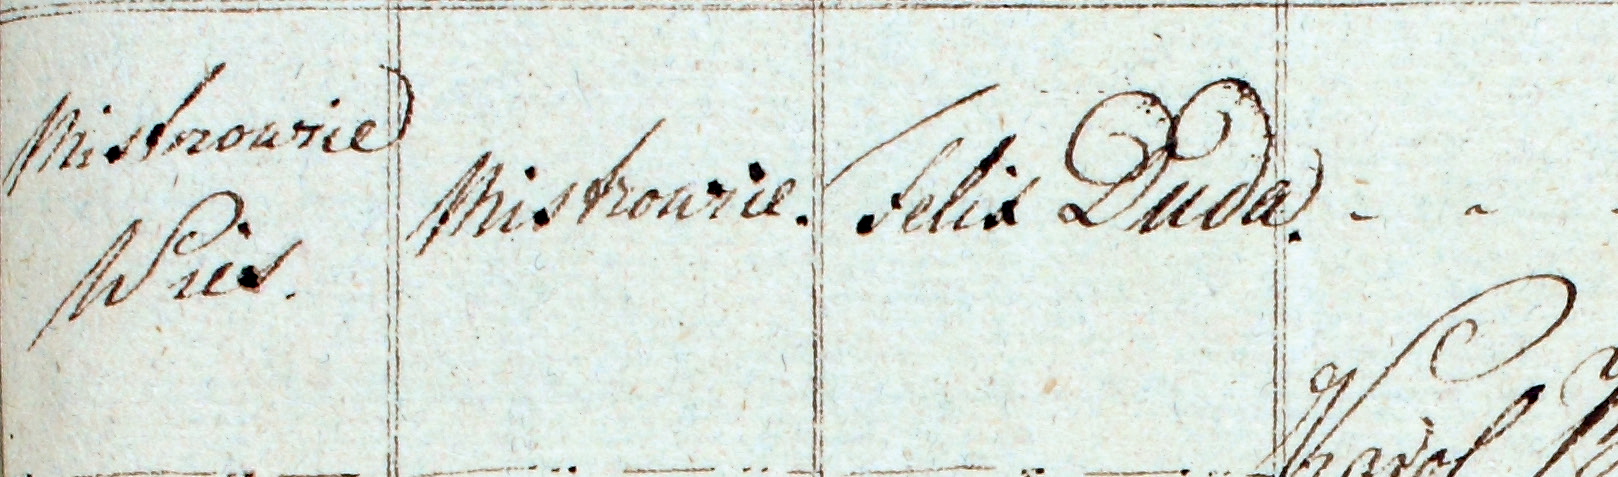 Mistrowice
Wieś.
Mistrowice.
Felix Duda. - -
Karol